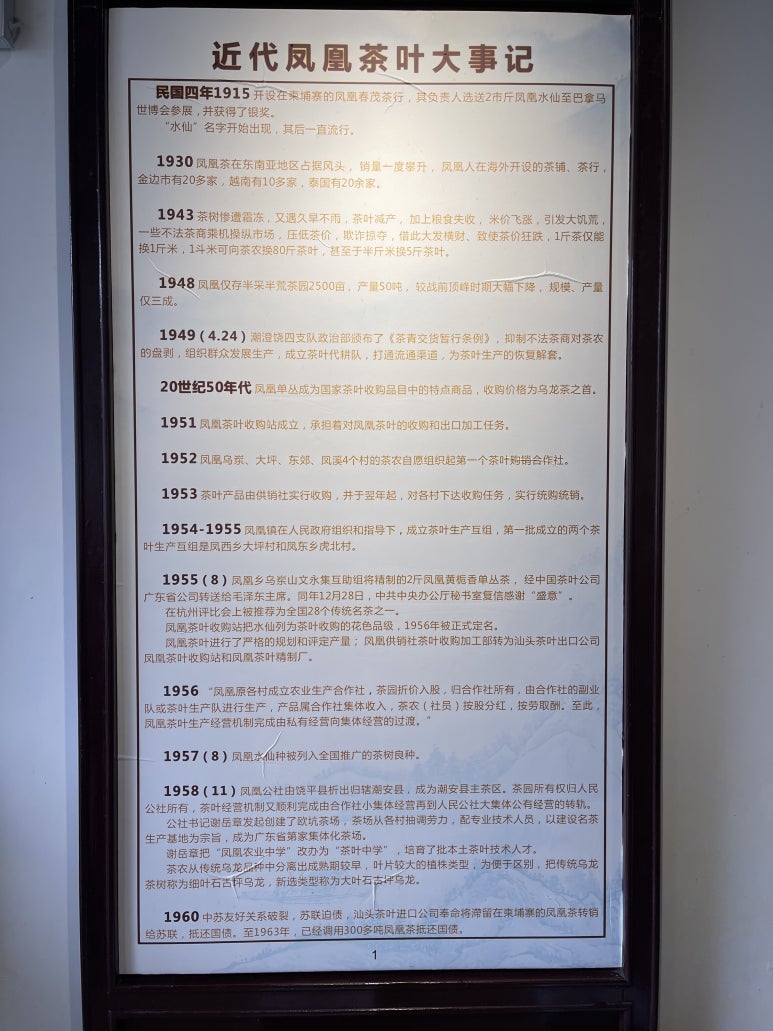 近代凤凰茶叶大事记
民国四年1915 开设在柬埔寨的凤凰春茂茶行，其负责人选送2市斤凤凰水仙至巴拿马
世博会参展，并获得了银奖。
“水仙”名字开始出现，其后一直流行。
1930 凤凰茶在东南亚地区占据风头， 销量一度攀升， 凤凰人在海外开设的茶铺、茶行，
金边市有20多家，越南有10多家，泰国有20余家。
1943 茶树惨遭霜冻，又遇久旱不雨，茶叶减产， 加上粮食失收， 米价飞涨，引发大饥荒，
一些不法茶商乘机操纵市场，压低茶价，欺诈掠夺，借此大发横财、致使茶价狂跌，1斤茶仅能
换1斤米，1斗米可向茶农换80斤茶叶，甚至于半斤米换5斤茶叶。
1948 凤凰仅存半采半荒茶园2500亩，产量50吨， 较战前顶峰时期大幅下降， 规模、产量
仅三成。
1949（4.24）潮澄饶四支队政治部颁布了《茶青交货暂行条例》，抑制不法茶商对茶农
的盘剥，组织群众发展生产，成立茶叶代耕队，打通流通渠道，为茶叶生产的恢复解套。
20世纪50年代 凤凰单丛成为国家茶叶收购品目中的特点商品，收购价格为乌龙茶之首。
1951 凤凰茶叶收购站成立，承担着对凤凰茶叶的收购和出口加工任务。
1952 凤凰乌岽、大坪、东郊、凤溪4个村的茶农自愿组织起第一个茶叶购销合作社。
1953 茶叶产品由供销社实行收购，并于翌年起，对各村下达收购任务，实行统购统销。
1954-1955 凤凰镇在人民政府组织和指导下，成立茶叶生产互组，第一批成立的两个茶
叶生产互组是凤西乡大坪村和凤东乡虎北村。
1955（8）凤凰乡乌岽山文永集互助组将精制的2斤凤凰黄栀香单丛茶， 经中国茶叶公司
广东省公司转送给毛泽东主席。同年12月28日，中共中央办公厅秘书室复信感谢“盛意”。
在杭州评比会上被推荐为全国28个传统名茶之一。
凤凰茶叶收购站把水仙列为茶叶收购的花色品级，1956年被正式定名。
凤凰茶叶进行了严格的规划和评定产量； 凤凰供销社茶叶收购加工部转为汕头茶叶出口公司
凤凰茶叶收购站和凤凰茶叶精制厂。
1956 “凤凰原各村成立农业生产合作社，茶园折价入股，归合作社所有，由合作社的副业
队或茶叶生产队进行生产，产品属合作社集体收入，茶农（社员）按股分红，按劳取酬。至此，
凤凰茶叶生产经营机制完成由私有经营向集体经营的过渡。”
1957（8）凤凰水仙种被列入全国推广的茶树良种。
1958（11）凤凰公社由饶平县析出归辖潮安县，成为潮安县主茶区。茶园所有权归人民
公社所有，茶叶经营机制又顺利完成由合作社小集体经营再到人民公社大集体公有经营的转轨。
公社书记谢岳章发起创建了欧坑茶场，茶场从各村抽调劳力，配专业技术人员，以建设名茶
生产基地为宗旨，成为广东省第家集体化茶场。
谢岳章把“凤凰农业中学”改办为“茶叶中学”，培育了批本土茶叶技术人才。
茶农从传统乌龙品种中分离出成熟期较早，叶片较大的植株类型，为便于区别，把传统乌龙
茶树称为细叶石古坪乌龙，新选类型称为大叶石古坪乌龙。
1960 中苏友好关系破裂，苏联迫债，汕头茶叶进口公司奉命将滞留在柬埔寨的凤凰茶转销
给苏联，抵还国债。至1963年，已经调用300多吨凤凰茶抵还国债。
1